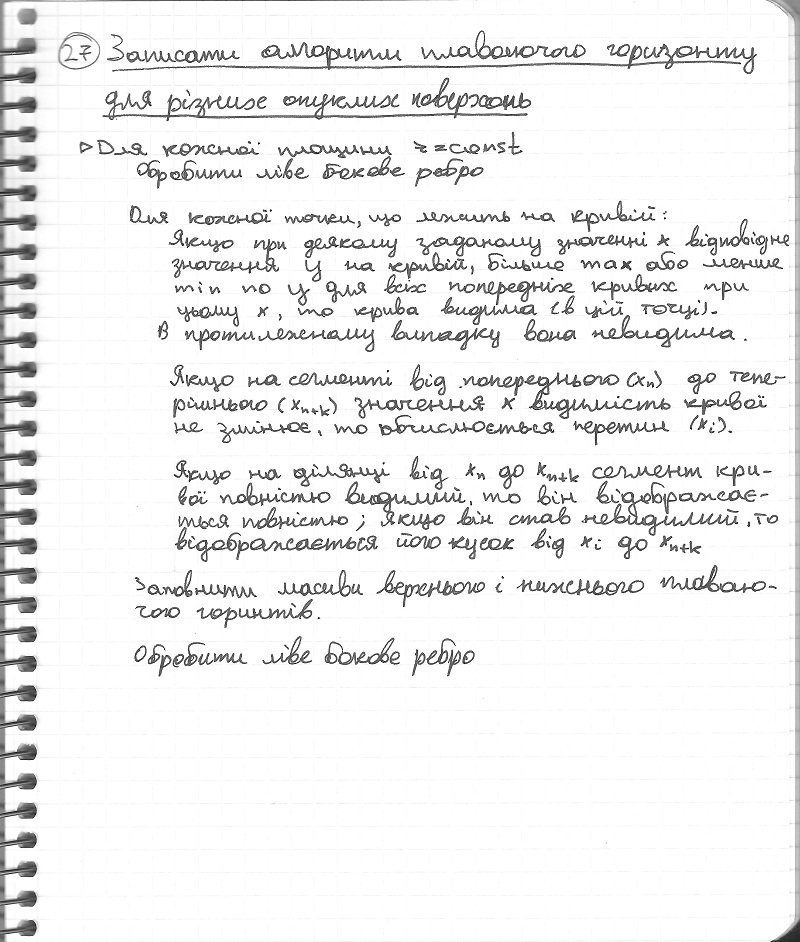 27 Записати алгоритм плаваючого горизонту
для різних опуклих поверхонь
▷ Для кожної площини z=const
Обробити ліве бокове ребро
Для кожної точки, що лежить на кривій:
Якщо при деякому заданому значенні x відповідне
значення y на кривій, більше max або менше
min по y для всіх попередніх кривих при
цьому x, то крива видима (в цій точці).
В протилежному випадку вона невидима.
Якщо на сегменті від попереднього (xₙ) до тепе-
рішнього (xₙ₊ₖ) значення x видимість кривої
не змінює, то обчислюється перетин (xᵢ).
Якщо на ділянці від xₙ до xₙ₊ₖ сегмент кри-
вої повністю видимий, то він відображає-
ться повністю; якщо він став невидимий, то
відображається його кусок від xᵢ до xₙ₊ₖ
Заповнити масиви верхнього і нижнього плаваю-
чого горинтів.
Обробити ліве бокове ребро